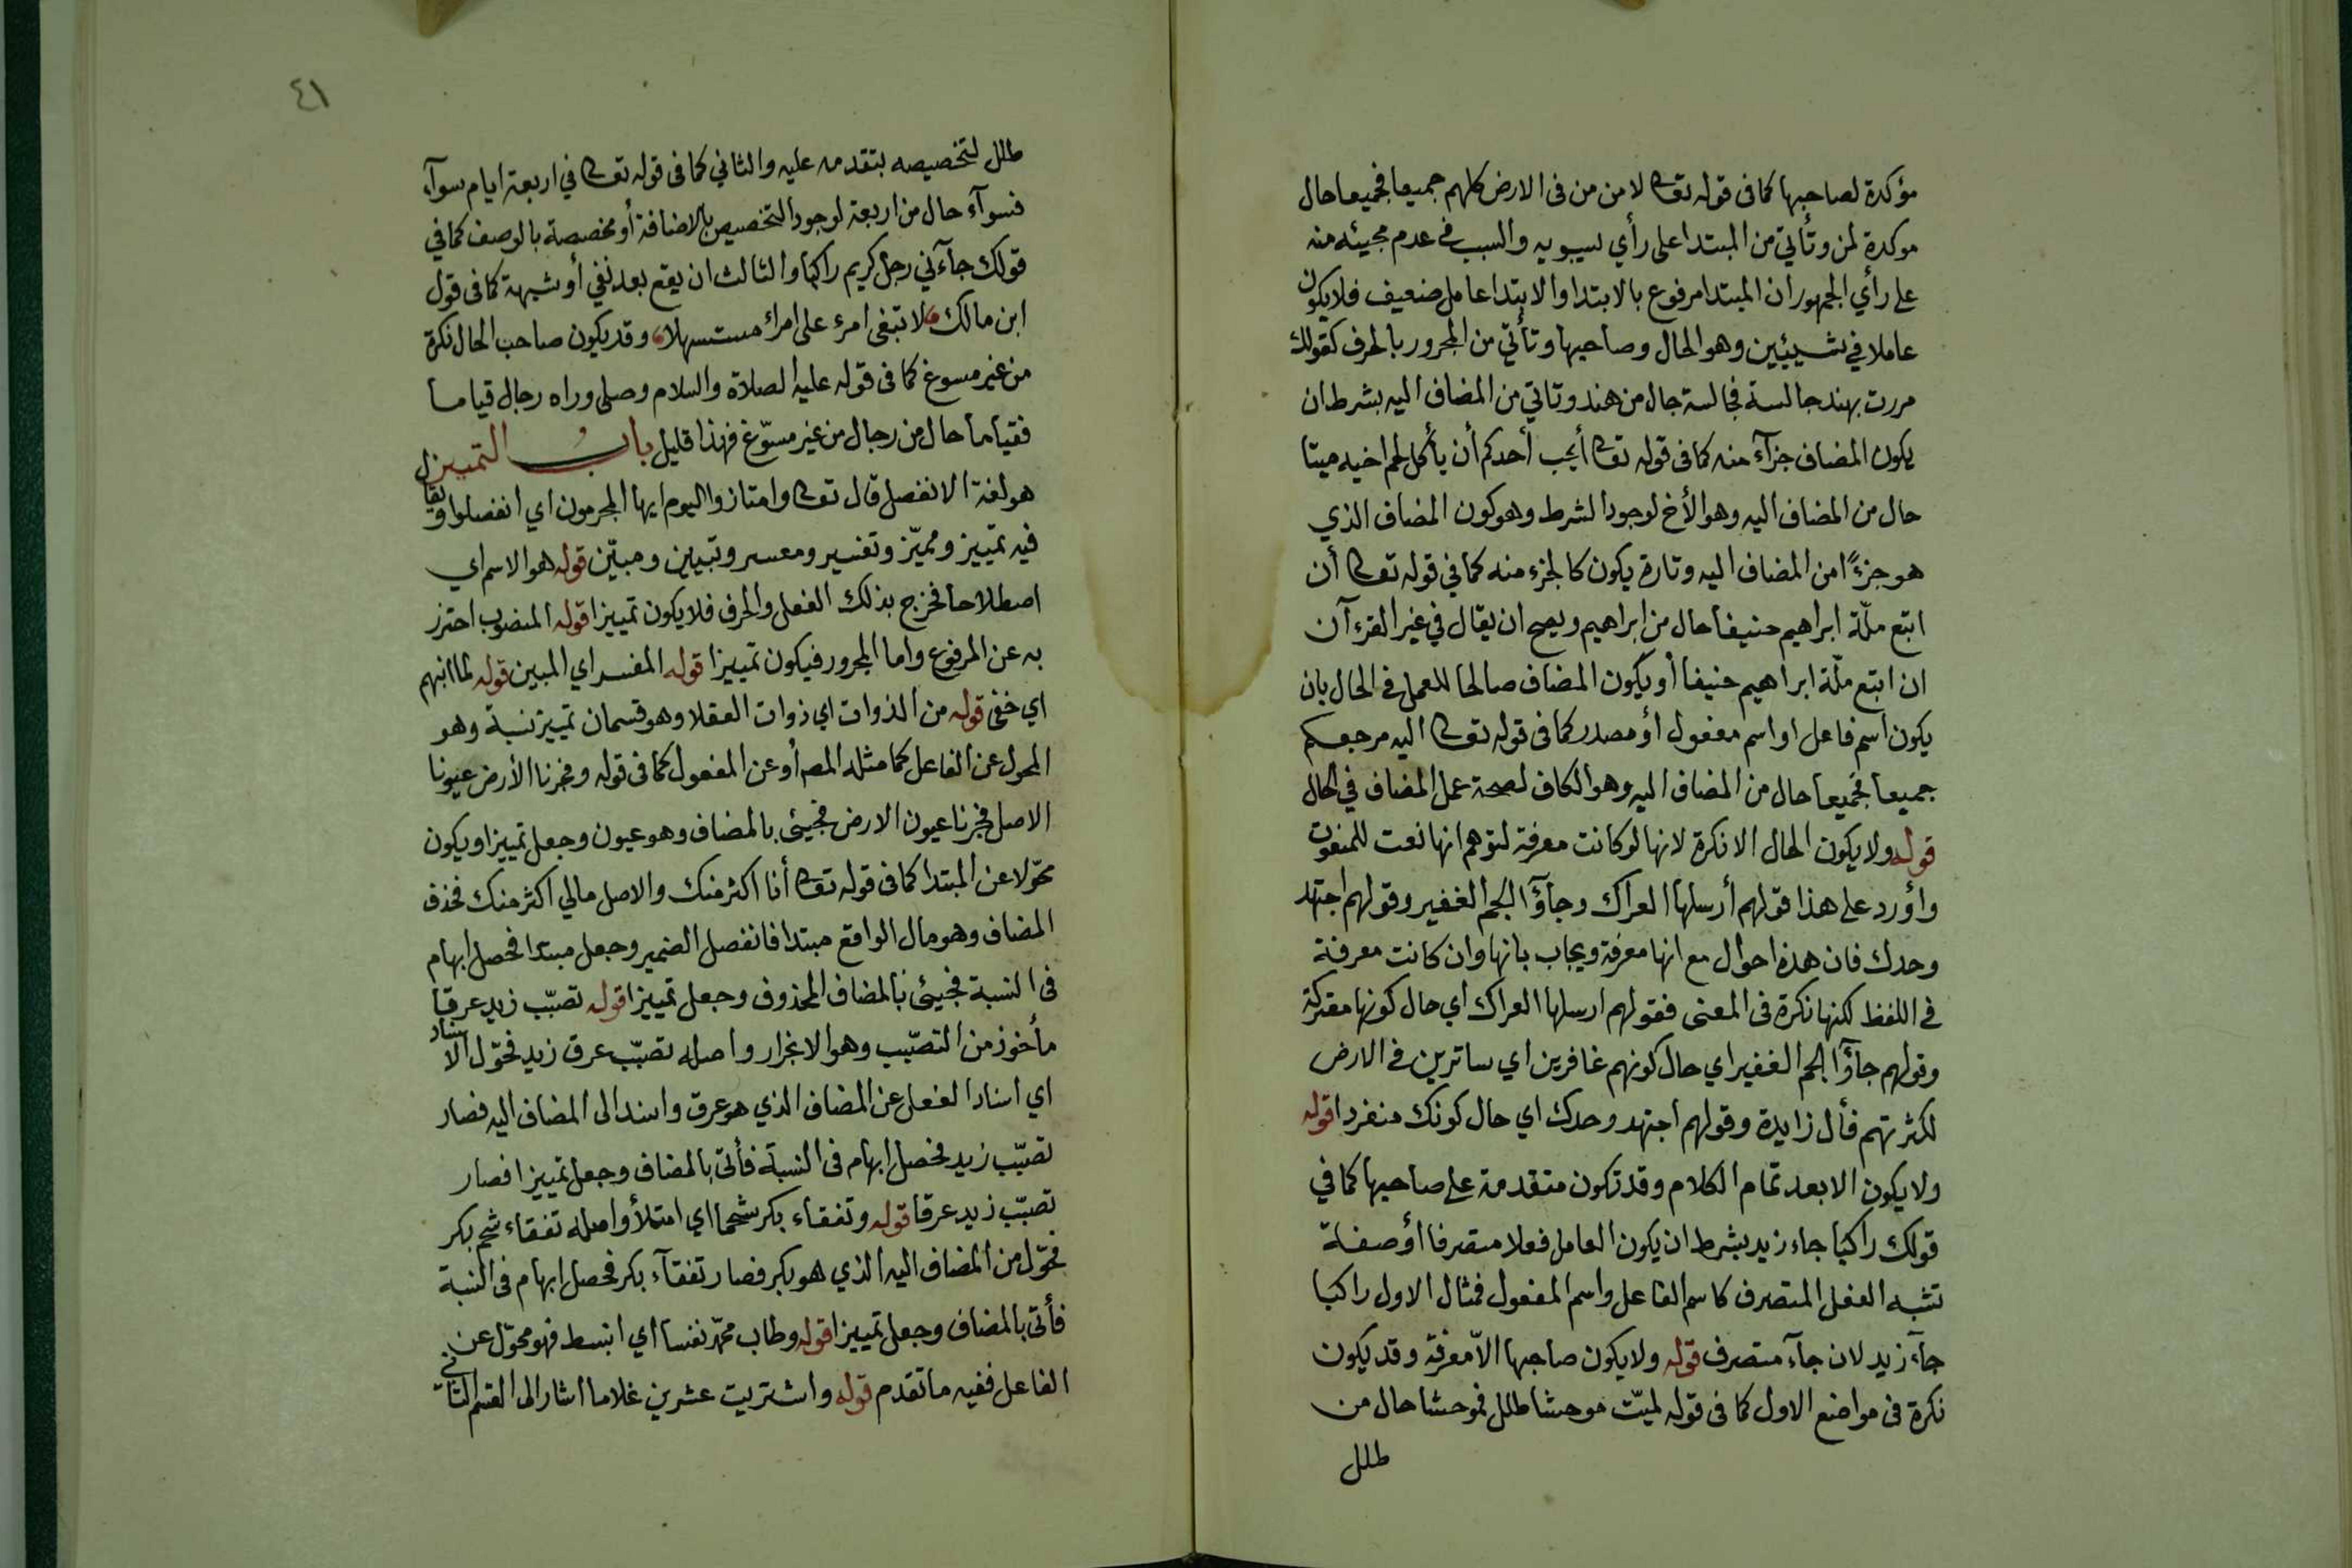 مؤكدة لصاحبها كما فى قوله تعالى لامن من فى الارض كلهم جميعا فجميعا حال
موكدة لمن وتأتي من المبتدا على رأي سيبويه والسبب في عدم مجيئه منه
على رأي الجمهور ان المبتدا مرفوع بالابتدا والابتدا عامل ضعيف فلا يكون
عاملا في شيئين وهو الحال وصاحبها وتأتي من المجرور بالحرف كقولك
مررت بهند جالسة فجالسة حال من هند وتاتي من المضاف اليه بشرط ان
يكون المضاف جزآء منه كما فى قوله تعالى أيحب أحدكم أن يأكل لحم اخيه ميتا
حال من المضاف اليه وهو الأخ لوجود الشرط وهو كون المضاف الذي
هو جزءًا من المضاف اليه وتارة يكون كالجزء منه كما في قوله تعالى أن
اتبع ملّة ابراهيم حنيفا حال من ابراهيم ويصح ان يقال في غير القرءآن
ان اتبع ملّة ابراهيم حنيفا أو يكون المضاف صالحا للعمل في الحال بان
يكون اسم فاعل او اسم مفعول أو مصدر كما فى قوله تعالى اليه مرجعكم
جميعا فجميعا حال من المضاف اليه وهو الكاف لصحة عمل المضاف في الحال
قوله ولا يكون الحال الا نكرة لانها لو كانت معرفة لتوهم انها نعت للمنعوت
وأورد على هذا قولهم أرسلها العراك وجآؤا الجم الغفير وقولهم اجتهد
وحدك فان هذه احوال مع انها معرفة ويجاب بانها وان كانت معرفة
في اللفظ لكنها نكرة فى المعنى فقولهم ارسلها العراك اي حال كونها معتركة
وقولهم جآؤا الجم الغفير اي حال كونهم غافرين اي ساترين في الارض
لكثرتهم فأل زايدة وقولهم اجتهد وحدك اي حال كونك منفردا قوله
ولا يكون الا بعد تمام الكلام وقد تكون متقدمة على صاحبها كما في
قولك راكبا جاء زيد بشرط ان يكون العامل فعلا متصرفا أو صفة
تشبه الفعل المتصرف كاسم الفاعل واسم المفعول فمثال الاول راكبا
جآء زيد لان جآء متصرف قوله ولا يكون صاحبها الاّ معرفة وقد يكون
نكرة فى مواضع الاول كما فى قوله لميّت موحشا طلل فموحشا حال من
طلل
٤١
طلل لتخصيصه بتقدمه عليه والثاني كما فى قوله تعالى في اربعة ايام سوآء
فسوآء حال من اربعة لوجود التخصيص بالاضافة أو مخصصة بالوصف كما في
قولك جآءني رجل كريم راكبا والثالث ان يقع بعد نفي أو شبهه كما فى قول
ابن مالك لا تبغى امرء على امراء مستسهلا وقد يكون صاحب الحال نكرة
من غير مسوغ كما فى قوله عليه الصلاة والسلام وصلى وراه رجال قياما
فقياما حال من رجال من غير مسوّغ فهذا قليل باب التمييز
هو لغة الانفصل قال تعالى وامتازوا اليوم ايها المجرمون اي انفصلوا ويقال
فيه تمييز ومميّز وتفسير ومفسر وتبيين ومبيّن قوله هو الاسم اي
اصطلاحا فخرج بذلك الفعل والحرف فلا يكون تمييزا قوله المنصوب احترز
به عن المرفوع واما المجرور فيكون تمييزا قوله المفسر اي المبين قوله لما انبهم
اي خفى قوله من الذوات اي ذوات العقلا وهو قسمان تمييز نسبة وهو
المحول عن الفاعل كما مثله المصـ أو عن المفعول كما فى قوله وفجرنا الأرض عيونا
الاصل فجرنا عيون الارض فجيئ بالمضاف وهو عيون وجعل تمييزا ويكون
محّولا عن المبتدا كما فى قوله تعالى أنا اكثر منك والاصل مالي اكثر منك فحذف
المضاف وهو مال الواقع مبتدا فانفصل الضمير وجعل مبتدا فحصل ابهام
فى النسبة فجيئ بالمضاف المحذوف وجعل تمييزا قوله تصبّب زيد عرقا
مأخوذ من التصبّب وهو الانجرار واصله تصبّب عرق زيد فحوّل الاسناد
اي اسناد الفعل عن المضاف الذي هو عرق واسند الى المضاف اليه فصار
تصبّب زيد فحصل ابهام فى النسبة فأتى بالمضاف وجعل تمييزا فصار
تصبّب زيد عرقا قوله وتفقاء بكر شحما اي امتلأ واصله تفقاء شحم بكر
فحوّل من المضاف اليه الذي هو بكر فصار تفقآء بكر فحصل ابهام فى النسبة
فأتى بالمضاف وجعل تمييزا قوله وطاب محمّد نفسا اي انبسط فهو محوّل عن
الفاعل ففيه ما تقدم قوله واشتريت عشرين غلاما اشار الى القسم الثاني